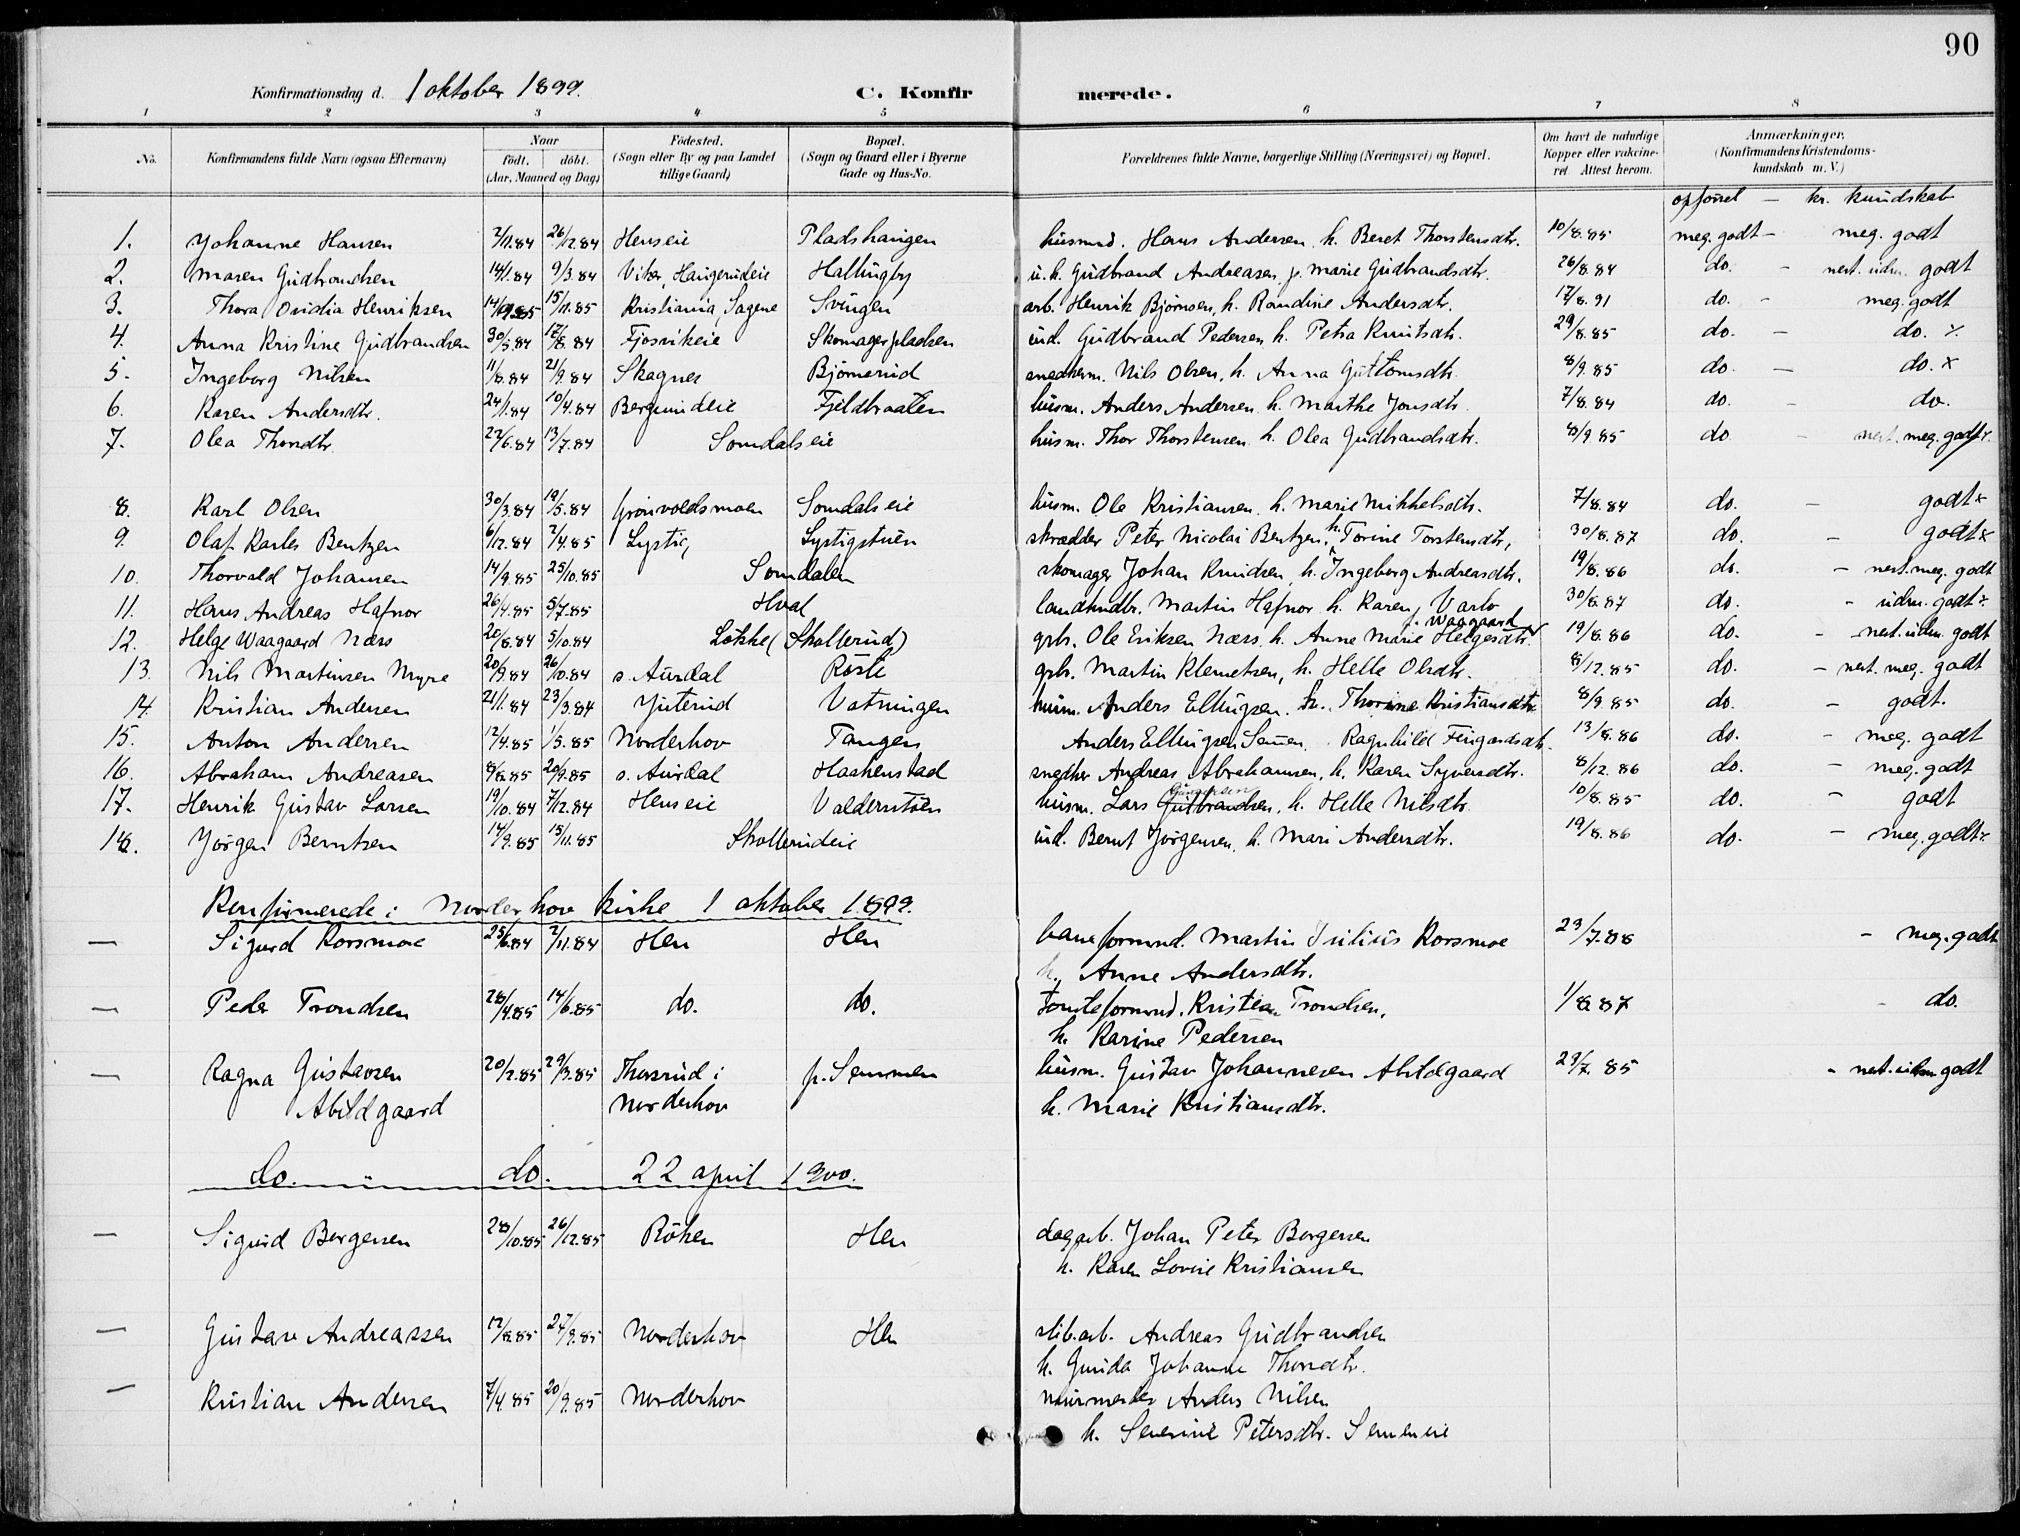 90
Konfirmationsdag d. 1 oktober 1899. C. Konfirmerede.
1 2 3 4 5 6 7 8
No. Konfirmandens fulde Navn (ogsaa Efternavn) Naar födt. döbt. (Aar, Maaned og Dag) Födested. (Sogn eller By og paa Landet tillige Gaard) Bopæl. (Sogn og Gaard eller i Byerne Gade og Hus-No. Forældrenes fulde Navne, borgerlige Stilling (Næringsvei) og Bopæl. Om havt de naturlige Kopper eller vakcineret. Attest herom. Anmærkninger. (Konfirmandens Kristendomskundskab m. V.)
opförsel – kr. kundskab
1. Johanne Hansen 2/11.84 26/12.84 Henseie Pladshaugen husmd. Hans Andersen, h. Beret Thorstensdtr. 10/8.85 meg. godt – meg. godt
2. Maren Gudbrandsen 14/1.84 9/3.84 Viker, Haugerudeie Hallingby u.k. Gudbrand Andreasen, p. Marie Gudbrandsdtr. 26/8.84 do. – nest. udm. godt
3. Thora Ovidia Henriksen 15/11.85 Kristiania, Sagene Svingen arb. Henrik Bjørnsen, h. Randine Andersdtr. 17/8.91 do. – meg. godt
4. Anna Kristine Gudbrandsen 30/5.84 17/8.84 Fjosvikeie Skomagerpladsen ind. Gudbrand Pedersen, h. Petra Knutsdtr. 29/8.85 do. – do. x
5. Ingeborg Nilsen 11/8.84 21/9.84 Skagnes Bjørnerud snedkerm. Nils Olsen, h. Anna Guttomsdtr. 8/9.85 do. – do. x
6. Karen Andersdtr. 24/1.84 10/4.84 Bergsundeie Fjeldbraaten husm. Anders Andersen h. Marthe Jonsdtr. 7/8.84 do. – do.
7. Olea Thorsdtr. 22/6.84 13/7.84 Somdalseie husm. Thor Thorstensen h. Olea Gudbrandsdtr. 8/9.85 do. – nest. meg. godt x
8. Karl Olsen 30/3.84 18/5.84 Grönvoldsmoen Somdalseie husm. Ole Kristiansen, h. Marie Mikkelsdtr. 7/8.84 do. – godt x
9. Olaf Karles Bentzen 6/12.84 7/4.85 Lystig, Lystigstuen skrædder Peter Nicolai Bentzen, h. Torine Torstensdtr. 30/8.87 do. – godt x
10. Thorvald Johansen 14/9.85 25/10.85 Somdalen skomager Johan Knudsen, h. Ingeborg Andreasdtr. 19/8.86 do. – nest. meg. godt
11. Hans Andreas Hafnor 26/4.85 5/7.85 Hval landhndlr. Martin Hafnor h. Karen, Varlo 30/8.87 do. – udm. godt x
12. Helge Waagaard Næss 20/8.84 5/10.84 Løkke (Skollerud) grb. Ole Eriksen Næss, h. Anne Marie Helgesdtr. f. Waagaard 19/8.86 do. – nest. udm. godt
13. Nils Martinsen Myre 20/9.84 26/10.84 s. Aurdal Røste grb. Martin Klemetsen, h. Helle Olsdtr. 8/12.85 do. – nest. meg. godt
14. Kristian Andersen 21/1.84 23/3.84 Juterud Vatningen husm. Anders Ellingsen, h. Thorine Kristiansdtr. 8/9.85 do. – godt.
15. Anton Andersen 12/4.85 1/5.85 Norderhov Tangen Anders Ellingsen Semen, Ragnhild Fingarsdtr. 13/8.86 do. – meg. godt
16. Abraham Andreasen 8/8.85 20/9.85 s. Aurdal Haakenstad snedker Andreas Abrahamsen, h. Karen Syversdtr. 8/12.86 do. – meg. godt
17. Henrik Gustav Larsen 19/10.84 7/12.84 Henseie Valderstöen husm. Lars Gudbrandsen, h. Helle Nilsdtr. 10/8.85 do. – godt
18. Jørgen Berntsen 14/9.85 15/11.85 Skollerudeie ind. Bernt Jørgensen, h. Mari Andersdtr. 19/8.86 do. – meg. godt x
Konfirmerede i Norderhov kirke 1 oktober 1899.
– Sigurd Korsmoe 25/6.84 2/11.84 Hen Hen baneformnd. Martin Julius Korsmoe 23/7.88 – meg. godt
h. Anne Andersdtr.
– Peder Trondsen 28/4.85 14/6.85 do. do. tomteformnd. Kristian Trondsen, 1/8.87 – do.
h. Karine Pedersen
– Ragna Gustavsen 20/2.85 29/3.85 Thorsrud i p. Semmen husm. Gustav Johannesen Abildgaard 29/7.85 – nest. udm. godt
Abildgaard Norderhov h. Marie Kristiansdtr.
do. – do. 22 april 1900.
– Sigurd Bergersen 28/10.85 26/12.85 Röken Hen dagarb. Johan Peter Bergersen
h. Karen Lovise Kristiansen
– Gustav Andreassen 12/8.85 27/9.85 Norderhov Hen slib.arb. Andreas Gudbrandsen
h. Gunda Johanne Thorsdtr.
– Kristian Andersen 7/4.85 20/9.85 Norderhov murmester Anders Nilsen
h. Severine Petersdtr. Semeneie